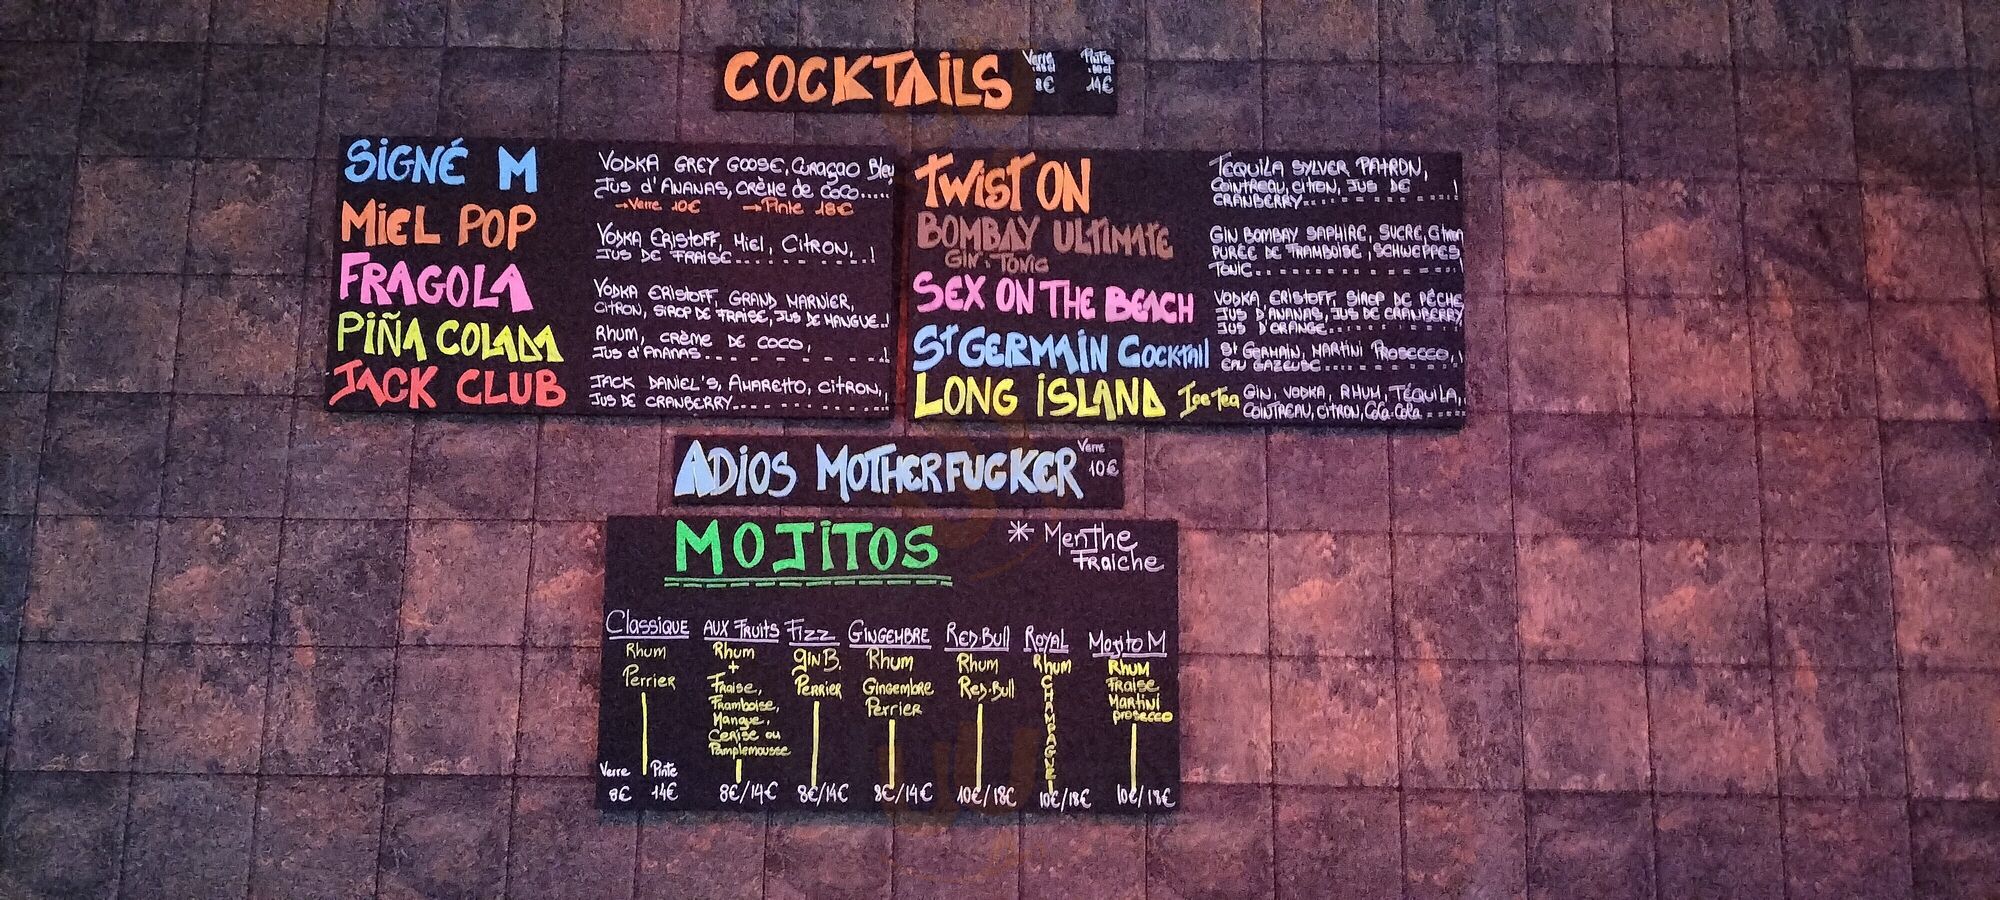 COCKTAILS Verre 8€ Pinte 14€
SIGNÉ M
VODKA GREY GOOSE, Curaçao Bleu
JUS d'ANANAS, CRÈME de coco.....
→Verre 10€ →Pinte 18€
MIEL POP
VODKA ERISTOFF, Miel, CITRON,
JUS DE FRAISE..........!
FRAGOLA
VODKA ERISTOFF, GRAND MARNIER,
CITRON, SIROP DE FRAISE, JUS DE MANGUE..!
PIÑA COLADA
Rhum, CRÈME DE COCO,
JUS d'ANANAS..........!
JACK CLUB
JACK DANIEL'S, AMARETTO, CITRON,
JUS DE CRANBERRY..........!
TWIST ON
TEQUILA SYLVER PATRON,
COINTREAU, CITRON, JUS DE
CRANBERRY..........!
BOMBAY ULTIMATE
GIN. TONIC
GIN BOMBAY SAPHIRE, SUCRE, Citron
PURÉE DE FRAMBOISE, SCHWEPPES
TONIC..........!
SEX ON THE BEACH
VODKA ERISTOFF, SIROP DE PÊCHE
JUS D'ANANAS, JUS DE CRANBERRY,
JUS D'ORANGE..........
St GERMAIN COCKTAIL
St GERMAIN, MARTINI PROSECCO,
EAU GAZEUSE..........!
LONG ISLAND Ice Tea
GIN, VODKA, RHUM, TÉQUILA,
COINTREAU, CITRON, Coca-Cola......
ADIOS MOTHERFUCKER Verre 10€
MOJITOS
* MENTHE
FRAICHE
Classique
Rhum
Perrier
Verre Pinte
8€ 14€
AUX FRUITS
Rhum
+
Fraise,
Framboise,
Mangue,
Cerise ou
Pamplemousse
8€/14€
FIZZ
GIN B.
PERRIER
8€/14€
GINGEMBRE
Rhum
Gingembre
Perrier
8€/14€
RED.BULL
Rhum
Red.Bull
10€/18€
ROYAL
Rhum
CHAMPAGNE
10€/18€
Mojito M
RHUM
FRAISE
MARTINI
prosecco
10€/18€